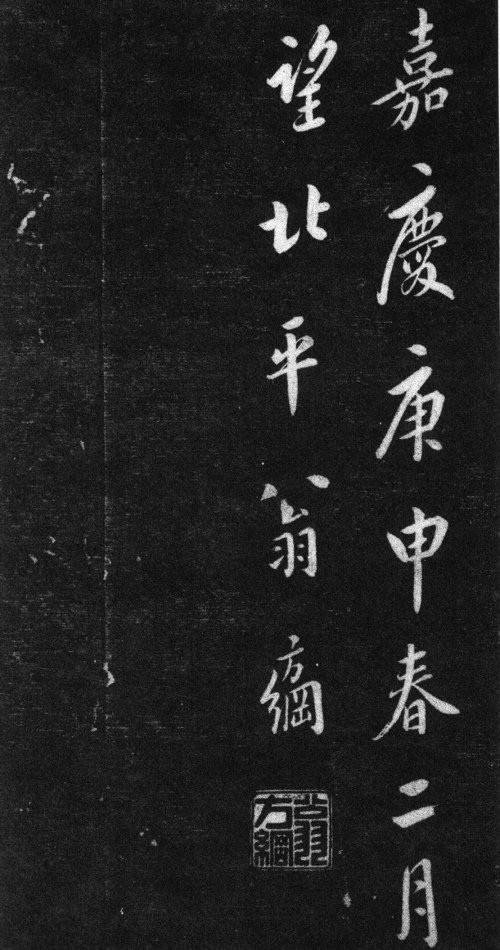 嘉慶庚申春二月
望北平翁方綱
翁方綱